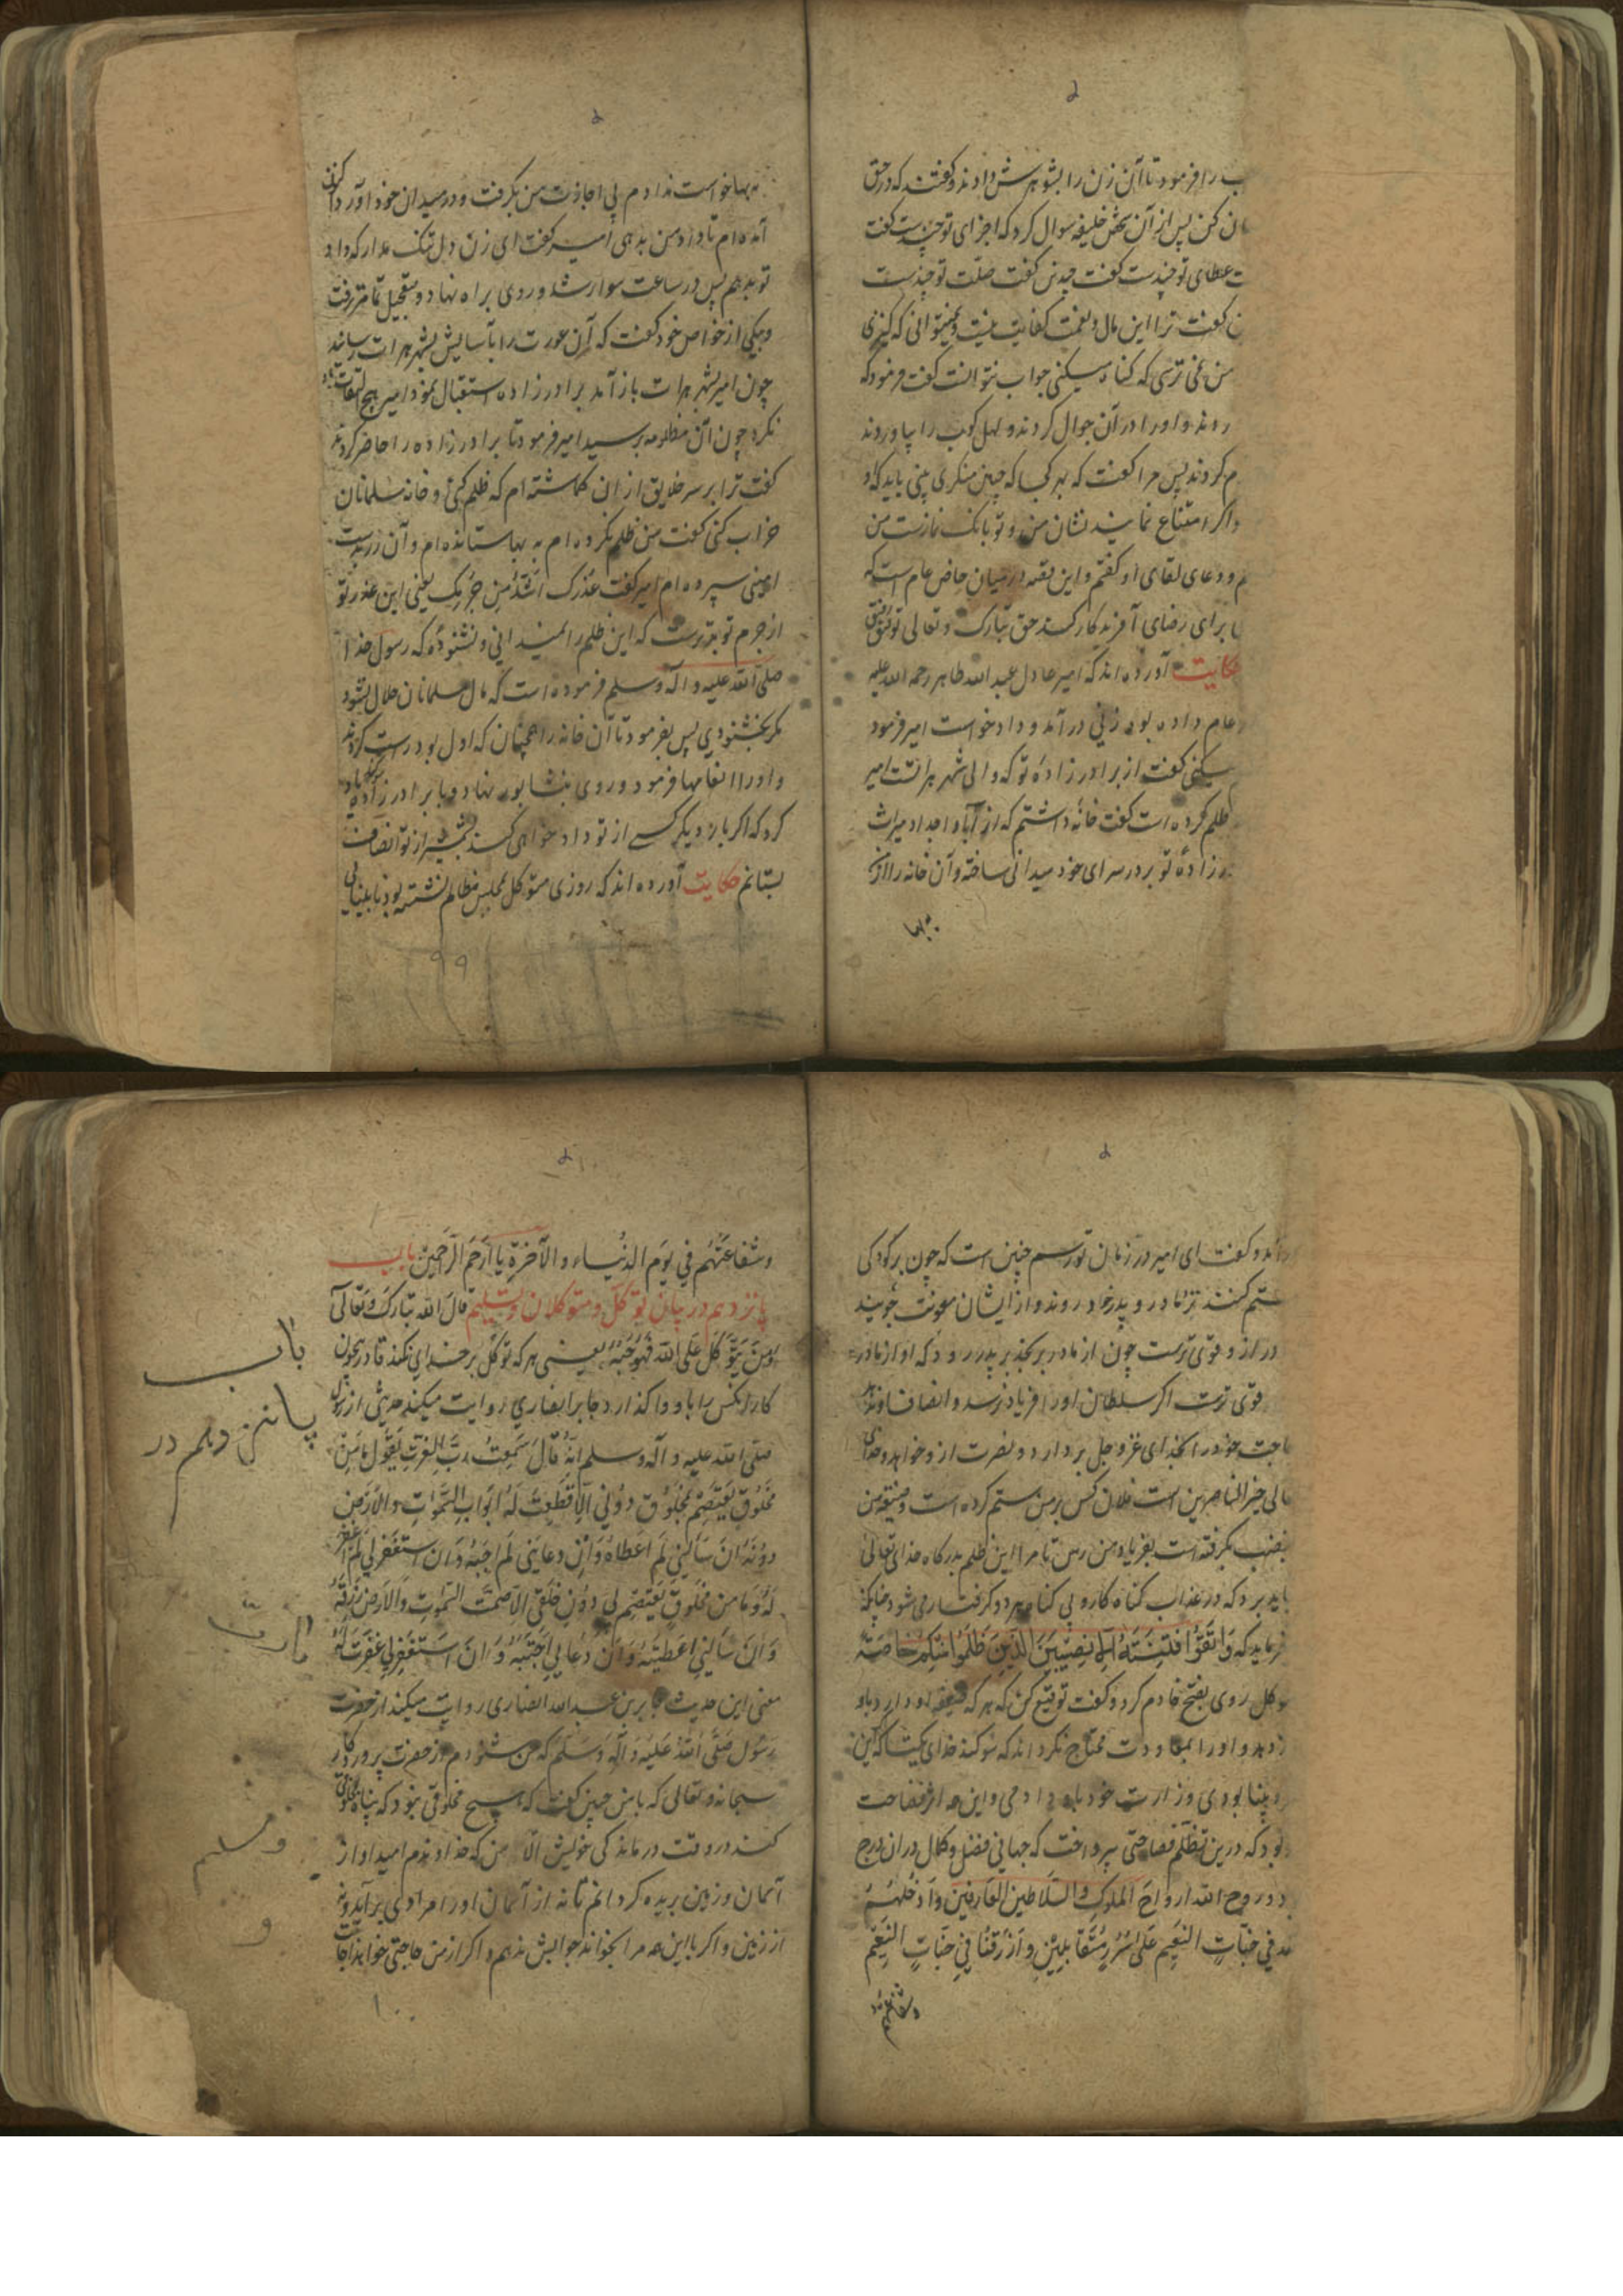 را فرمود تا آن زن را بشوهرش دادند و گفتند که در حق
کن پس از آن شخص خلیفه سوال کرد که اجرای تو چندست گفت
عطای تو چندست گفت چندین گفت صلت تو چندست
گفت ترا این مال و نعمت کفایت نیست که کنیزی
من نمی ترسی که گناه میکنی جواب نتوانست گفت فرمود که
و او را در آن جوال کردند و را بیاوردند
کردند پس مرا گفت که بهر کجا که چنین منکری بینی باید که
و اگر امتناع نمایند نشان من و تو بانک نمازست من
و دعای لقای او گفتم و این قصه در میان خاص و عام است که
برای رضای آفریدگار کند حق تبارک و تعالی
حکایت آورده اند که امیر عادل عبد الله طاهر رحمه الله علیه
عام داده بود زنی درآمد و داد خواست امیر فرمود
میکنی گفت از برادرزاده تو که والی شهر هراتست امیر
ظلم کرده است گفت خانه داشتم که از آبا و اجداد میراث
زاده تو بر در سرای خود میدانی ساخته و آن خانه را از من
به بها
به بها خواست ندادم بی اجازت من بگرفت و در میدان خود آورد اکنون
آمده ام تا داد من بدهی امیر گفت ای زن دل تنک مدار که داد
تو بدهم پس در ساعت سوار شد و روی براه نهاد و بتعجیل تمامتر رفت
و بیکی از خواص خود گفت که آن عورت را بآسایش بشهر هرات رساند
چون امیر بشهر هرات باز آمد برادرزاده استقبال نمود امیر هیچ التفات
نکرد چون آن مظلومه برسید امیر فرمود تا برادرزاده را حاضر کردند
گفت ترا بر سر خلایق از آن گماشته ام که ظلم کنی و خانه مسلمانان
خراب کنی گفت من ظلم نکرده ام به بها ستانده ام و آن زر بدست
امینی سپرده ام امیر گفت عذرک اشد من جرمک یعنی این عذر تو
از جرم تو بترست که این ظلم را نمیدانی و نشنوده که رسول خدا
صلی الله علیه و آله و سلم فرموده است که مال مسلمانان حلال نشود
مگر بخشنودی پس بفرمود تا آن خانه را همچنان که اول بود درست کردند
و او را انعامها فرمود و روی بنشابور نهاد و با برادرزاده
کرد که اگر بار دیگر کسی از تو داد خواهی کند بشمشیر از تو انصاف
بستانم حکایت آورده اند که روزی متوکل بمجلس مظالم نشسته بود نابینایی
۹۹
و گفت ای امیر در زمان تو رسم چنین است که چون بر کودکی
ستم کنند نزد مادر و پدر خود روند و از ایشان معونت جویند
دراز و قوی ترست چون از مادر بگذرد بر پدر رود که او از مادر
قوی ترست اگر سلطان او را فریاد نرسد و انصاف او ندهد
حاجت خود را بخدای عز و جل بردارد و نصرت از و خواهد و خدای
خیر الناصرین است فلان کس بر من ستم کرده است و ضیعه من
بغصب بگرفته است بفریاد من رس تا مرا این ظلم بدرگاه خدای تعالی
باید برد که در عذاب گناه کار و بی گناه هر دو گرفتار می شود چنانکه
فرماید که وَاتَّقُوا فِتْنَةً لا تُصِيبَنَّ الَّذِينَ ظَلَمُوا مِنْكُمْ خَاصَّةً
متوکل روی بفتح خادم کرد و گفت توقیع کن که هر که ضیعه او دارد باو
و او را بمعاودت محتاج نگرداند که سوگند خدای یکتا که این
بینا بودی وزارت خود باو دادمی و این همه از فصاحت
بود که درین تظلم فصاحتی بپرداخت که جهانی فضل و کمال در آن درج
روح الله ارواح الملوک و السلاطین العارفین و ادخلهم
فی جنات النعیم علی سرر متقابلین و ارزقنا فی جنات النعیم
و شفاعتهم
و شفاعتهم فی یوم الدنیا و الآخرة یا ارحم الراحمین باب
پانزدهم در بیان توکل و متوکلان و تسلیم قال الله تبارک و تعالی
وَمَنْ يَتَوَكَّلْ عَلَى اللَّهِ فَهُوَ حَسْبُهُ یعنی هر که توکل بر خدای کند قادر بیچون
کار آنکس را باو واگذارد جابر انصاری روایت میکند حدیثی از رسول
صلی الله علیه و آله و سلم انه قال سمعت رب العزت یقول ما من
مخلوق یعتصم بمخلوق دونی الا قطعت له ابواب السموات و الارض
دونه ان سألنی لم اعطاه و ان دعاینی لم اجبه و ان استغفرلی لم اغفر
له و ما من مخلوق یعتصم لی دون خلقی الا ضمت السموات و الارض رزقه
و ان سألنی اعطیته و ان دعانی اجبته و ان استغفرلی غفرت له
معنی این حدیث جابر بن عبد الله انصاری روایت میکند از حضرت
رسول صلی الله علیه و آله و سلم که من شنودم از حضرت پروردگار
سبحانه و تعالی که با من چنین گفت که هیچ مخلوقی نبود که پناه بمخلوقی
کند در وقت درماندگی خویش الا من که خداوندم امید او از
آسمان و زمین بریده گردانم تا نه از آسمان او را مرادی برآید و نه
از زمین و اگر با این همه مرا بخواند جوابش ندهم و اگر از من حاجتی خواهد اجابت
۱۰۰
باب
پانزدهم در